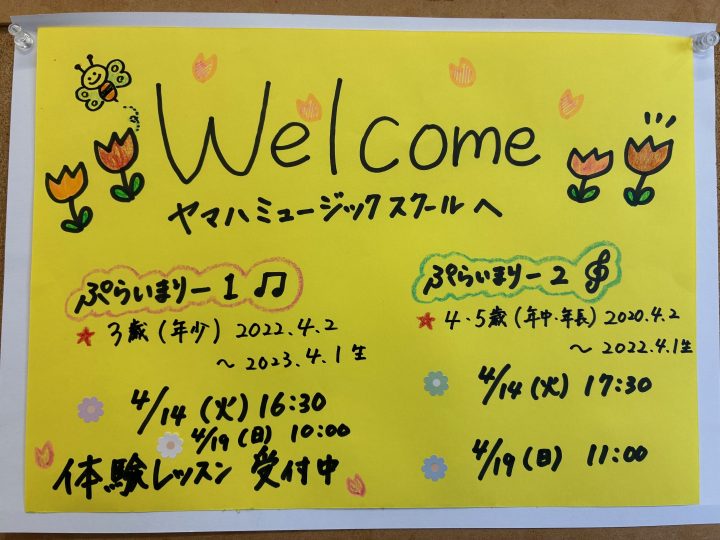 Welcome
ヤマハミュージックスクールへ
ぷらいまりー1
★3歳(年少) 2022.4.2
〜2023.4.1生
4/14(火)16:30
4/19(日) 10:00
ぷらいまりー2
★4・5歳(年中・年長) 2020.4.2
〜2022.4.1生
4/14(火) 17:30
4/19(日) 11:00
体験レッスン 受付中